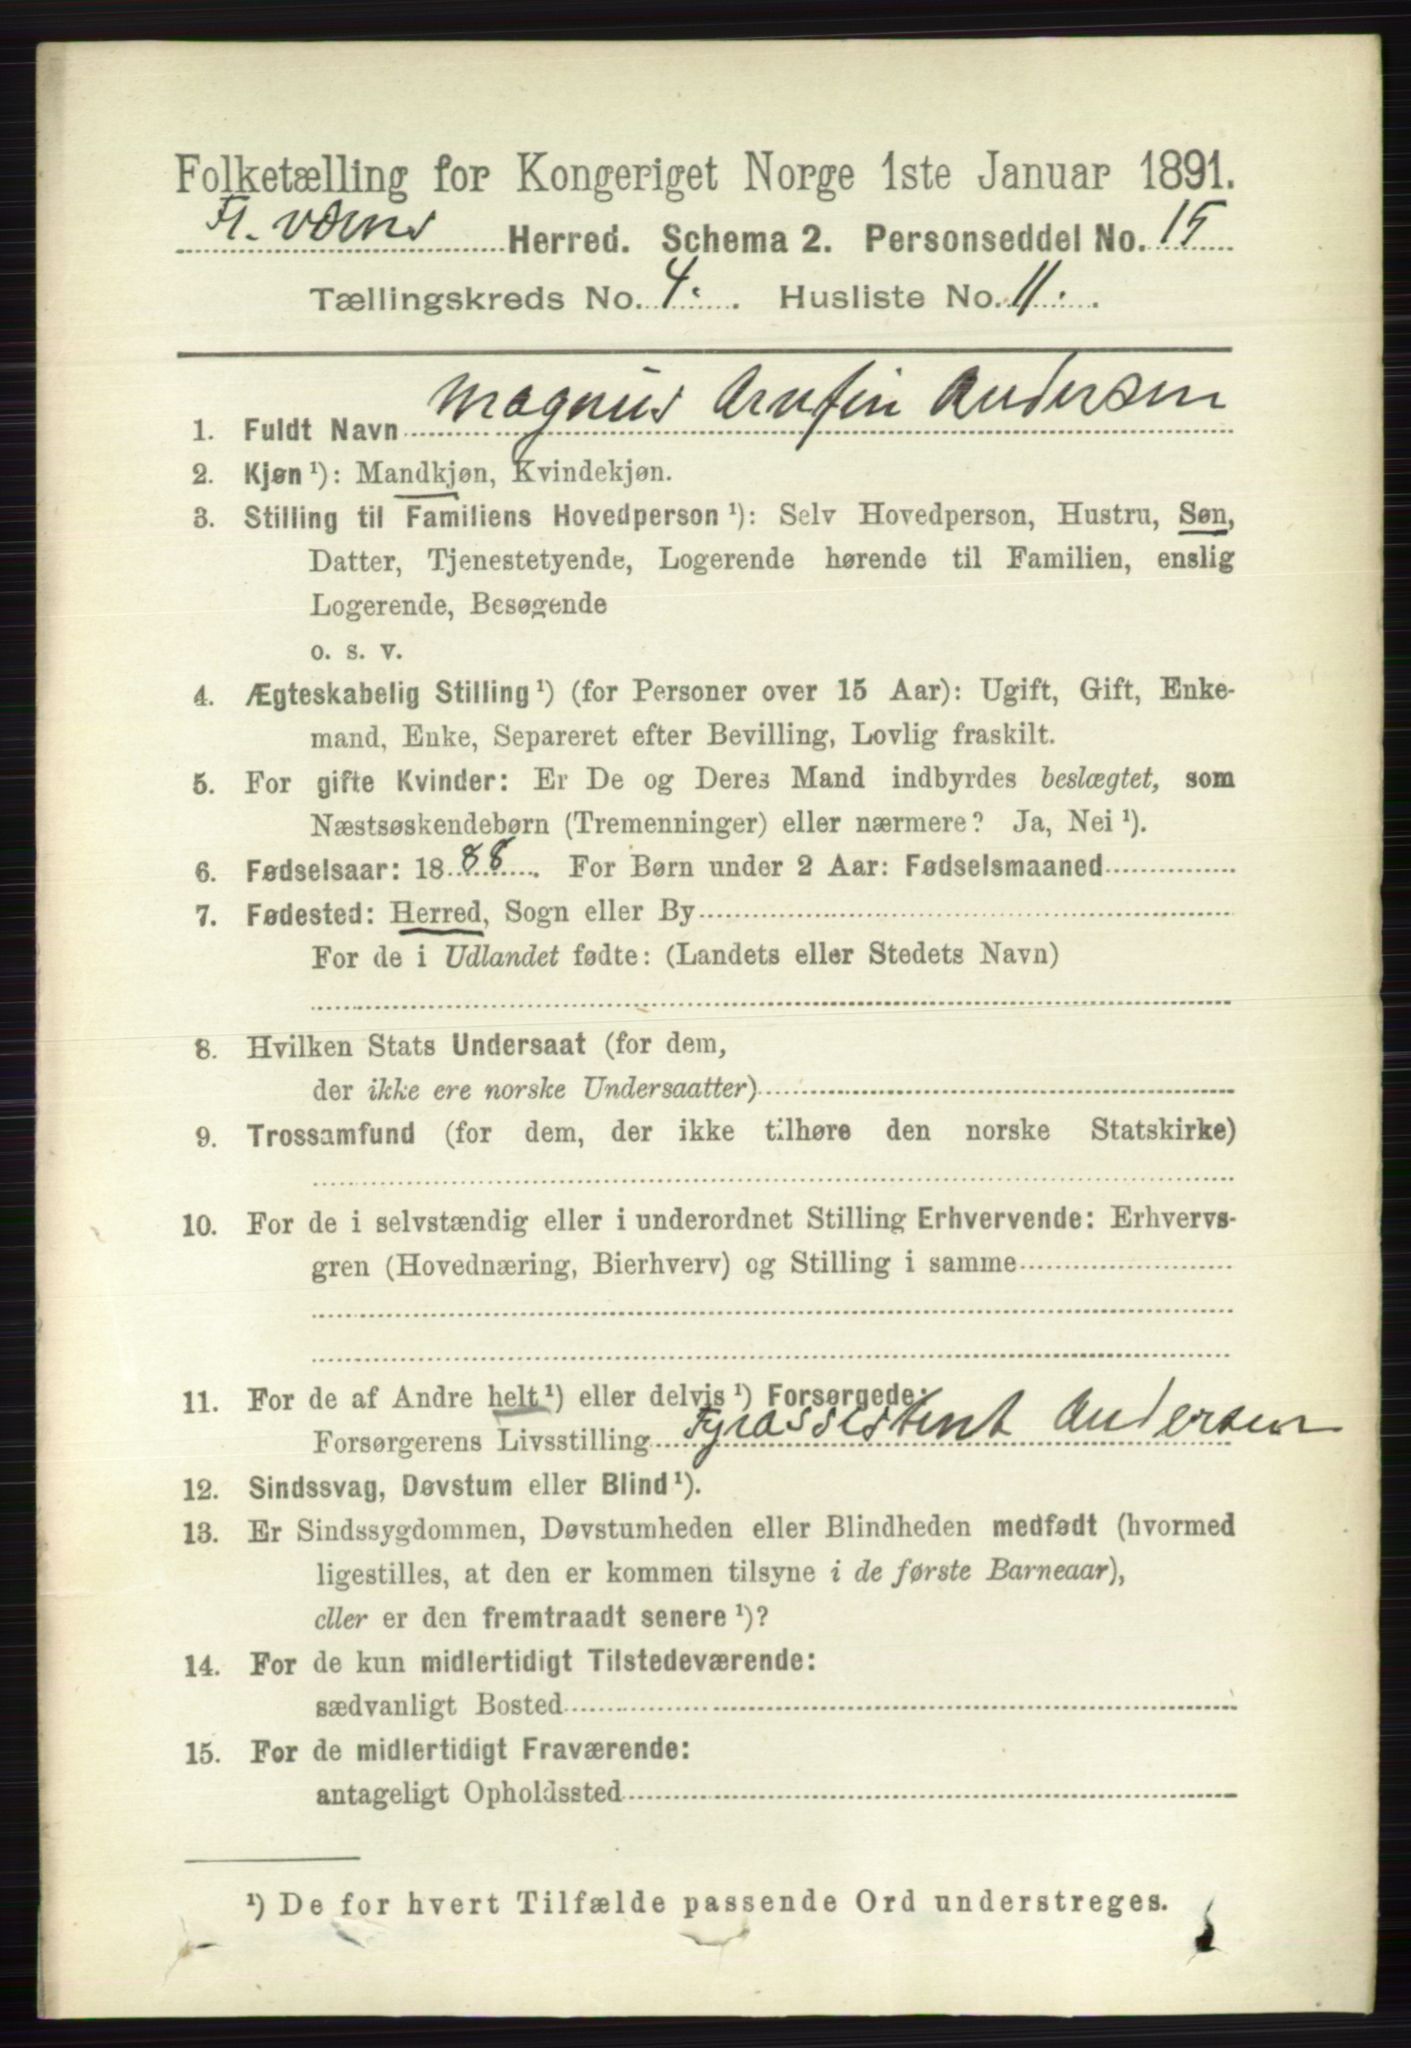 Folketælling for Kongeriget Norge 1ste Januar 1891.
Fr. værns Herred. Schema 2. Personseddel No. 15
Tællingskreds No. 4. Husliste No. 11.
1. Fuldt Navn Magnus Arnfin Andersen
2. Kjøn ¹): Mandkjøn, Kvindekjøn.
3. Stilling til Familiens Hovedperson ¹): Selv Hovedperson, Hustru, Søn,
Datter, Tjenestetyende, Logerende hørende til Familien, enslig
Logerende, Besøgende
o. s. v.
4. Ægteskabelig Stilling ¹) (for Personer over 15 Aar): Ugift, Gift, Enke-
mand, Enke, Separeret efter Bevilling, Lovlig fraskilt.
5. For gifte Kvinder: Er De og Deres Mand indbyrdes beslægtet, som
Næstsøskendebørn (Tremenninger) eller nærmere? Ja, Nei ¹).
6. Fødselsaar: 1888. For Børn under 2 Aar: Fødselsmaaned
7. Fødested: Herred, Sogn eller By
For de i Udlandet fødte: (Landets eller Stedets Navn)
8. Hvilken Stats Undersaat (for dem,
der ikke ere norske Undersaatter)
9. Trossamfund (for dem, der ikke tilhøre den norske Statskirke)
10. For de i selvstændig eller i underordnet Stilling Erhvervende: Erhvervs-
gren (Hovednæring, Bierhverv) og Stilling i samme
11. For de af Andre helt ¹) eller delvis ¹) Forsørgede:
Forsørgerens Livsstilling Fyrassistent Andersen
12. Sindssvag, Døvstum eller Blind ¹).
13. Er Sindssygdommen, Døvstumheden eller Blindheden medfødt (hvormed
ligestilles, at den er kommen tilsyne i de første Barneaar),
eller er den fremtraadt senere ¹)?
14. For de kun midlertidigt Tilstedeværende:
sædvanligt Bosted
15. For de midlertidigt Fraværende:
antageligt Opholdssted
¹) De for hvert Tilfælde passende Ord understreges.